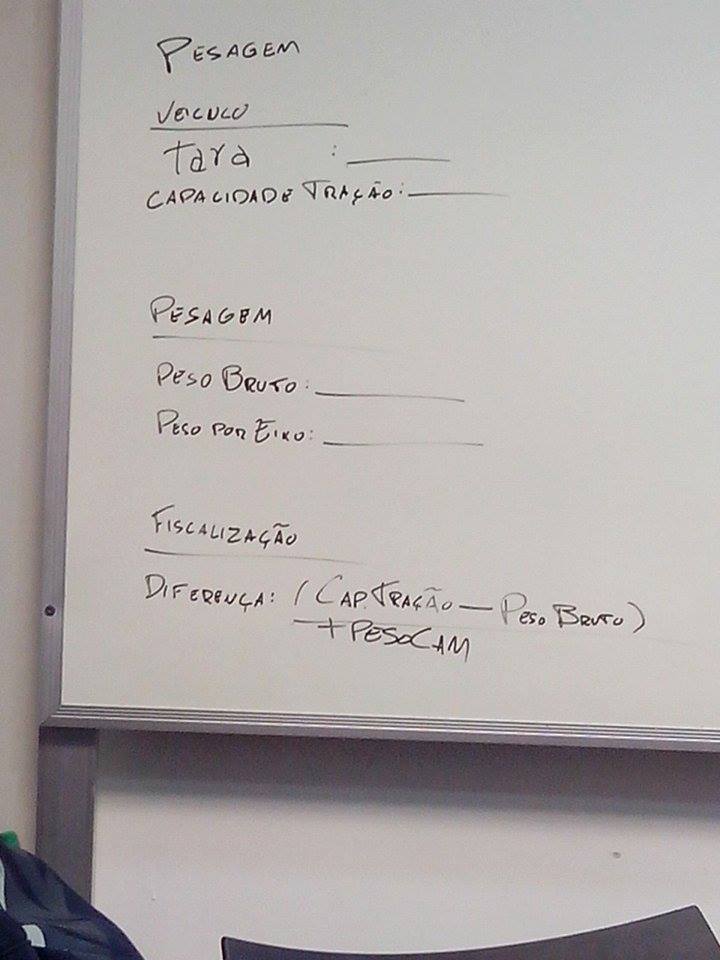 PESAGEM
VEICULO
Tara : ____
CAPACIDADE TRAÇÃO: ____
PESAGEM
PESO BRUTO: ____
PESO POR EIXO: ____
FISCALIZAÇÃO
DIFERENÇA: (CAP.TRAÇÃO — PESO BRUTO)
+ PESOCAM